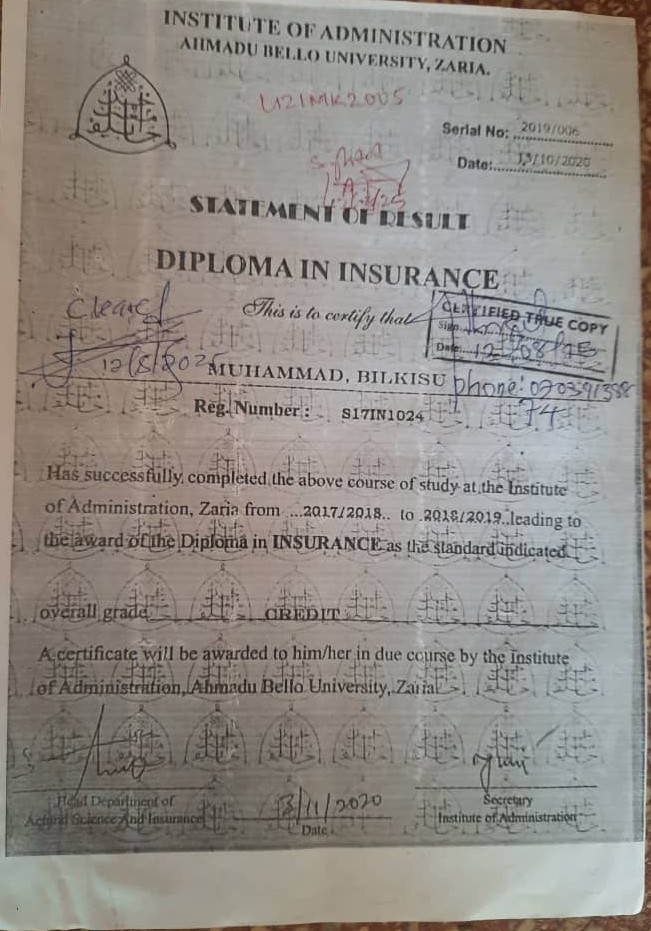 INSTITUTE OF ADMINISTRATION
AHMADU BELLO UNIVERSITY, ZARIA.
U21MK2005
Serial No: 2019/006
Date: 13/10/2020
STATEMENT OF RESULT
DIPLOMA IN INSURANCE
This is to certify that
Cleared
12/8/2025
CERTIFIED TRUE COPY
Sign
Date 12/08/25
MUHAMMAD, BILKISU
phone: 070391388
74
Reg. Number : S17IN1024
Has successfully completed the above course of study at the Institute
of Administration, Zaria from ...2017/2018.. to .2018/2019..leading to
the award of the Diploma in INSURANCE as the standard indicated
overall grade CREDIT
A certificate will be awarded to him/her in due course by the Institute
of Administration, Ahmadu Bello University, Zaria
13/11/2020
Head Department of
Actural Science And Insurance
Date
Secretary
Institute of Administration